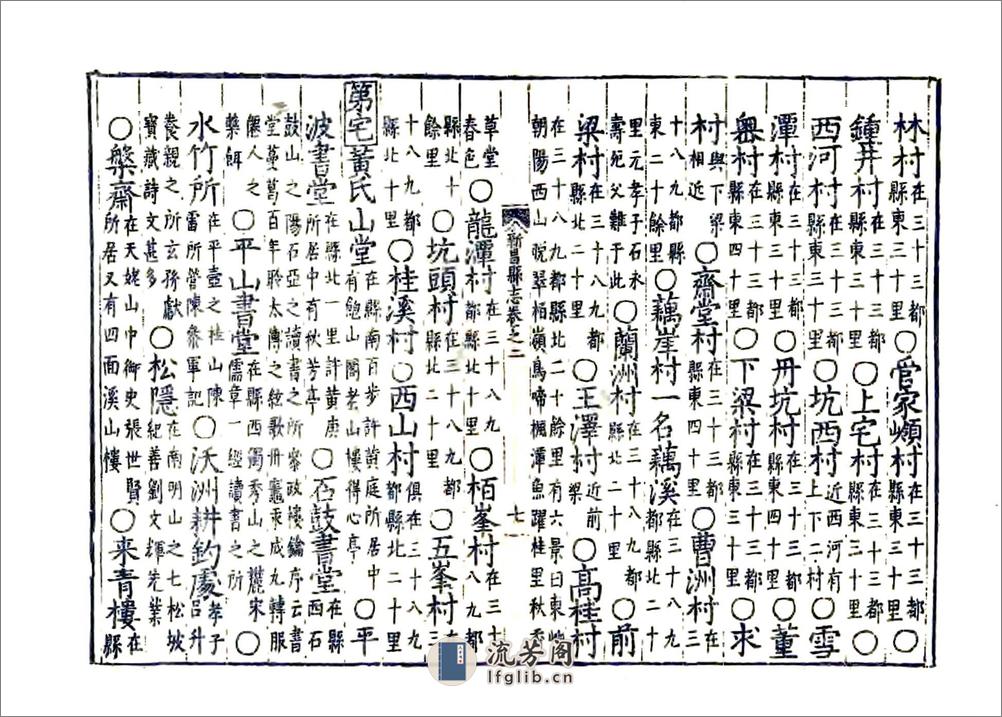 林村在三十三都縣東三十里○管家嶺村在三十三都縣東三十里○
鍾井村在三十三都縣東三十里○上宅村在三十三都縣東三十里○
西河村在三十三都縣東三十里○坑西村西河有上下二村○雪
潭村在三十三都縣東三十里○丹坑村在三十三都縣東四十里○董
奧村在三十三都縣東四十里○下梁村在三十三都縣東三十里○求
村與下梁村相近○齋堂村在三十三都縣東四十里○曹洲村在三
十八九都縣東二十餘里○藕岸村一名藕溪在三十八九都縣北二十
里元孝子石永壽死父難于此○蘭洲村在三十八九都縣北二十里○前
梁村在三十八九都縣北二十里○王澤村近前梁○高桂村
在三十八九都縣北二十餘里有六景曰東朝陽西山晚翠栢嶺鳥啼楓潭魚躍桂里秋香
新昌縣志卷之二 七
草堂春色○龍潭村在三十八九都縣北十里○栢峯村在三十八九都
縣北十餘里○坑頭村在三十八九都縣北二十里○五峯村在三
十八九都縣北十里○桂溪村○西山村俱在三十八九都縣北二十里
第宅黃氏山堂在縣南百步許黃庭所居中有鮑山閣老山樓得心亭○平
波書堂在縣北一里許黃庚所居中有秋芳亭○石鼓書堂在縣西石
鼓山之陽石亞之讀書之所樓鑰序云書堂蔓葛百年聆太傳之絃歌丹竈乘成九轉服
僊人之藥餌○平山書堂在縣西獨秀山之麓宋儒章一經讀書之所○
水竹所在平壺之桂山陳雷所營陳參軍記○沃洲耕釣處孝子呂升
養親之所玄務獻寶藏詩文甚多○松隱在南明山之七松坡紀善劉文輝先業
○槃齋在天姥山中御史張世賢所居又有四面溪山樓○来青樓在縣
流芳阁
lfglib.cn